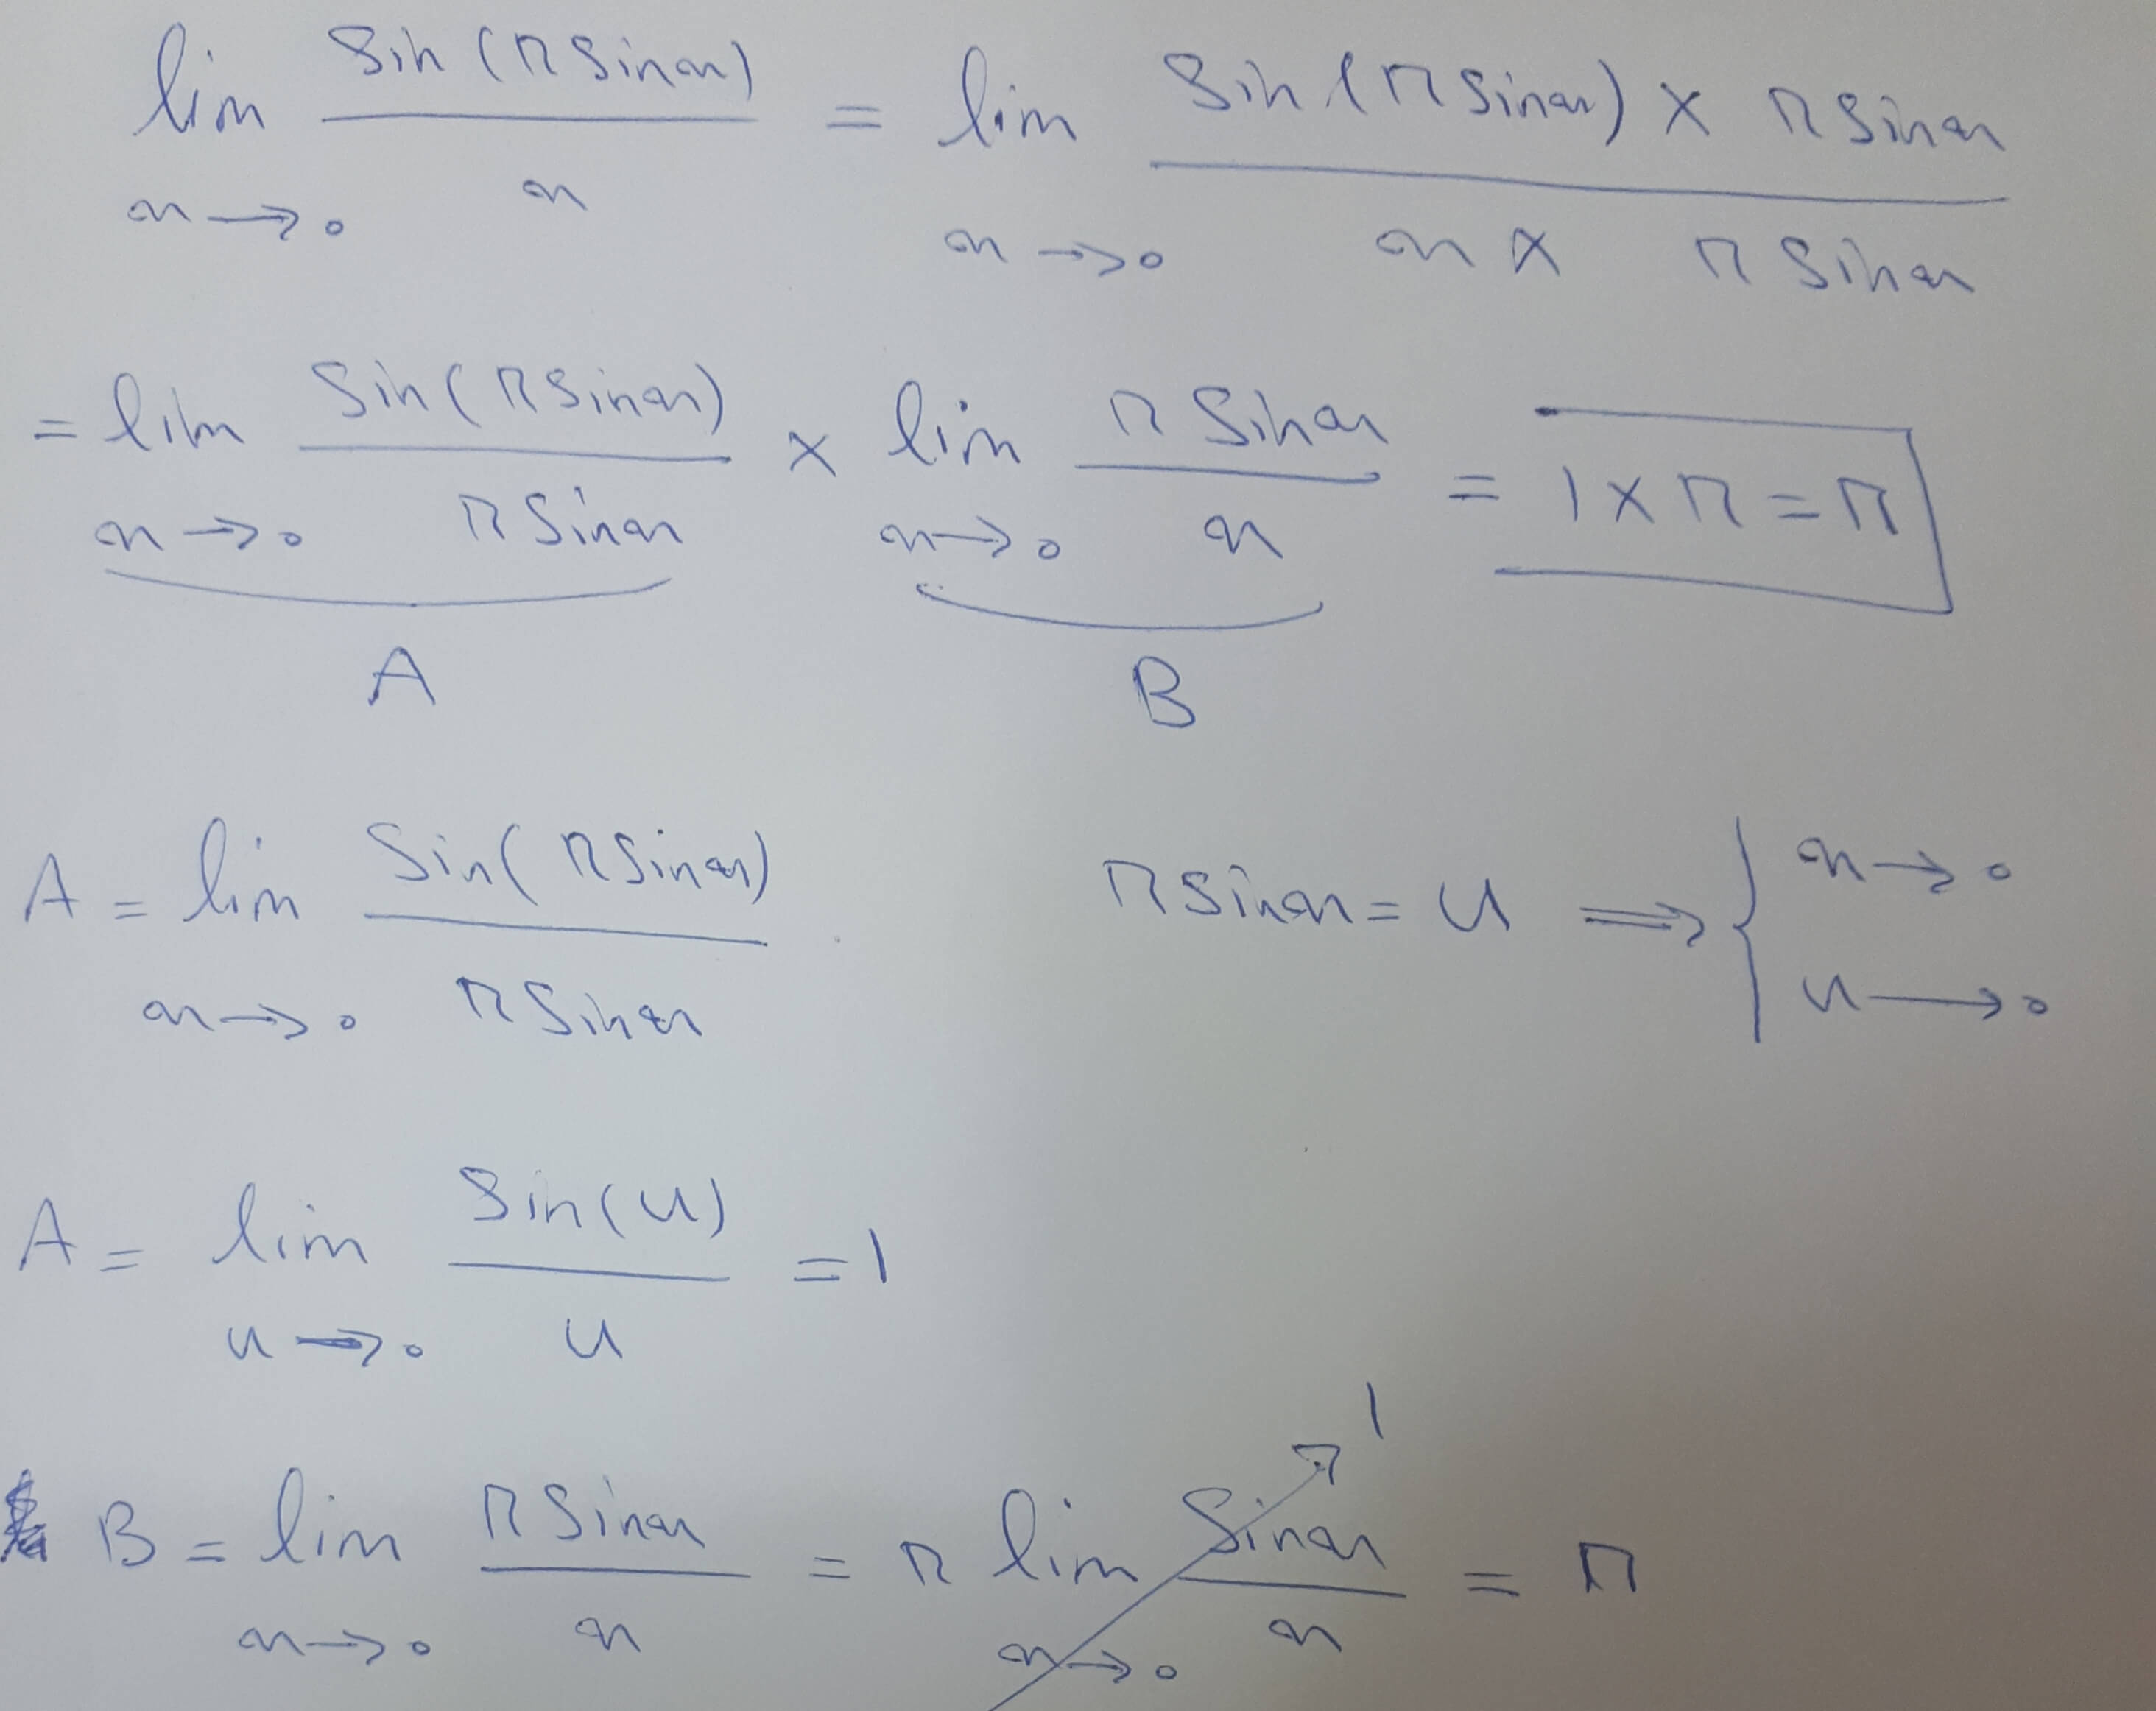 lim_{x→0} sin(π sin x) / x = lim_{x→0} sin(π sin x) × π sin x / x × π sin x
= lim_{x→0} sin(π sin x) / π sin x × lim_{x→0} π sin x / x = 1 × π = π
A B
A = lim_{x→0} sin(π sin x) / π sin x π sin x = u ⇒ { x→0 u→0
A = lim_{u→0} sin(u) / u = 1
B = lim_{x→0} π sin x / x = π lim_{x→0} sin x / x ↗ 1 = π